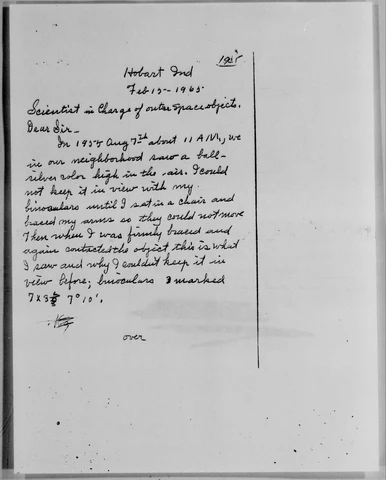 1955
Hobart Ind
Feb 15-1965
Scientist in Charge of outer space objects.
Dear Sir-
In 1955 Aug 7th about 11 A.M., we
in our neighborhood saw a ball-
silver color high in the air. I could
not keep it in view with my
binoculars until I sat in a chair and
braced my arms so they could not move
Then when I was firmly braced and
again contacted the object this is what
I saw and why I couldn't keep it in
view before, binoculars marked
7X35 7°10'.
over